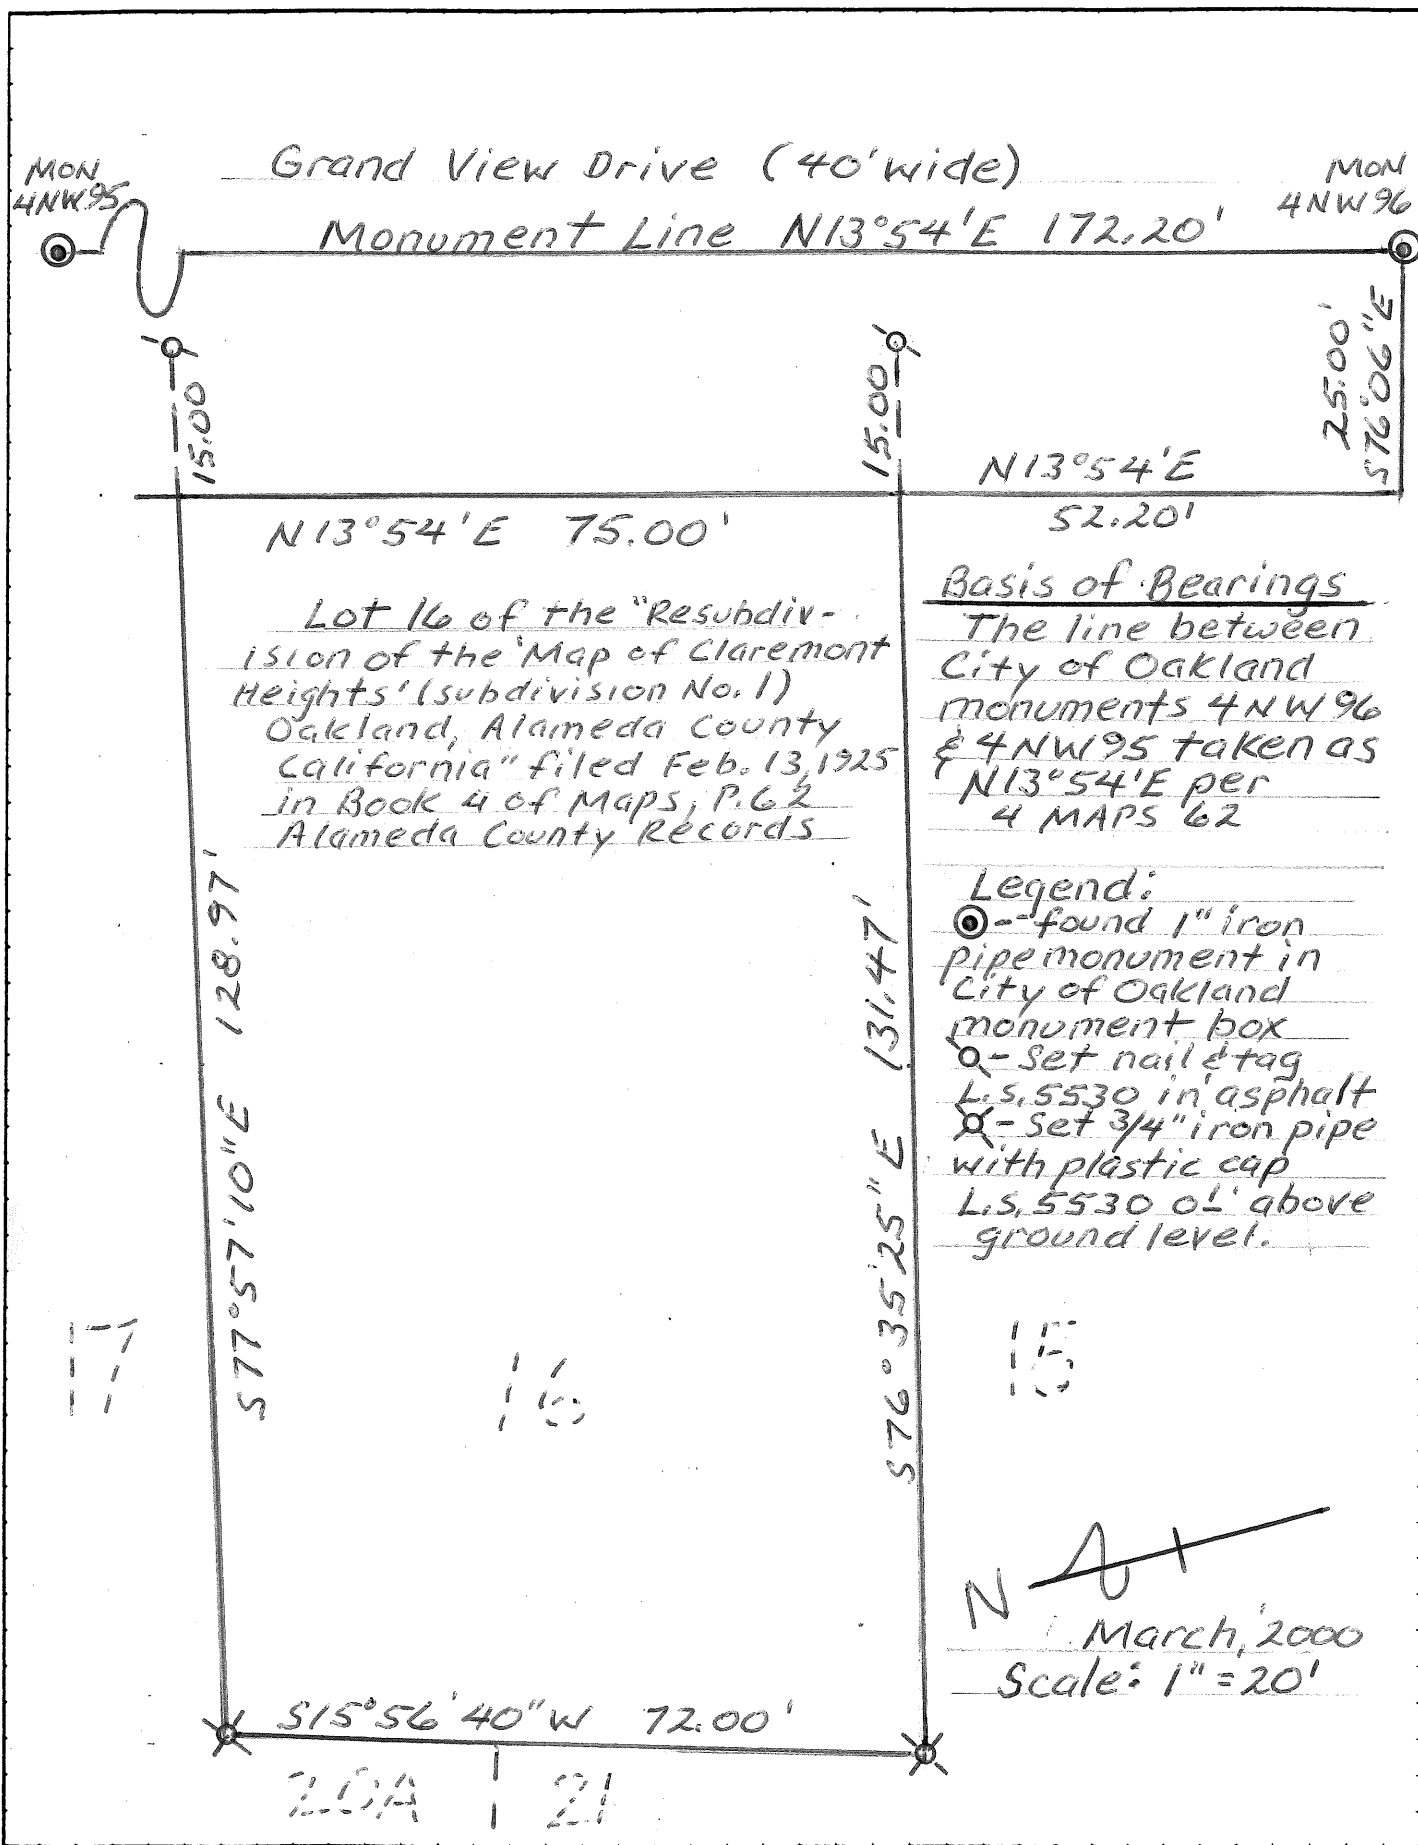 MON
4NW95
Grand View Drive (40' wide)
MON
4NW96
Monument Line N13°54'E 172.20'
25.00'
S76°06"E
15.00'
15.00'
N13°54'E
52.20'
N13°54'E 75.00'
Lot 16 of the "Resubdiv-
ision of the 'Map of Claremont
Heights' (subdivision No. 1)
Oakland, Alameda County
California" filed Feb. 13, 1925
in Book 4 of Maps, P. 62
Alameda County Records
Basis of Bearings
The line between
City of Oakland
monuments 4NW96
& 4NW95 taken as
N13°54'E per
4 MAPS 62
Legend:
-- found 1" iron
pipe monument in
City of Oakland
monument box
- Set nail & tag
L.S. 5530 in asphalt
- Set 3/4" iron pipe
with plastic cap
L.S. 5530 above
ground level.
S77°57'10"E 128.97'
S76°35'25"E 131.47'
17
16
15
N
March, 2000
Scale: 1" = 20'
S15°56'40"W 72.00'
20A
21